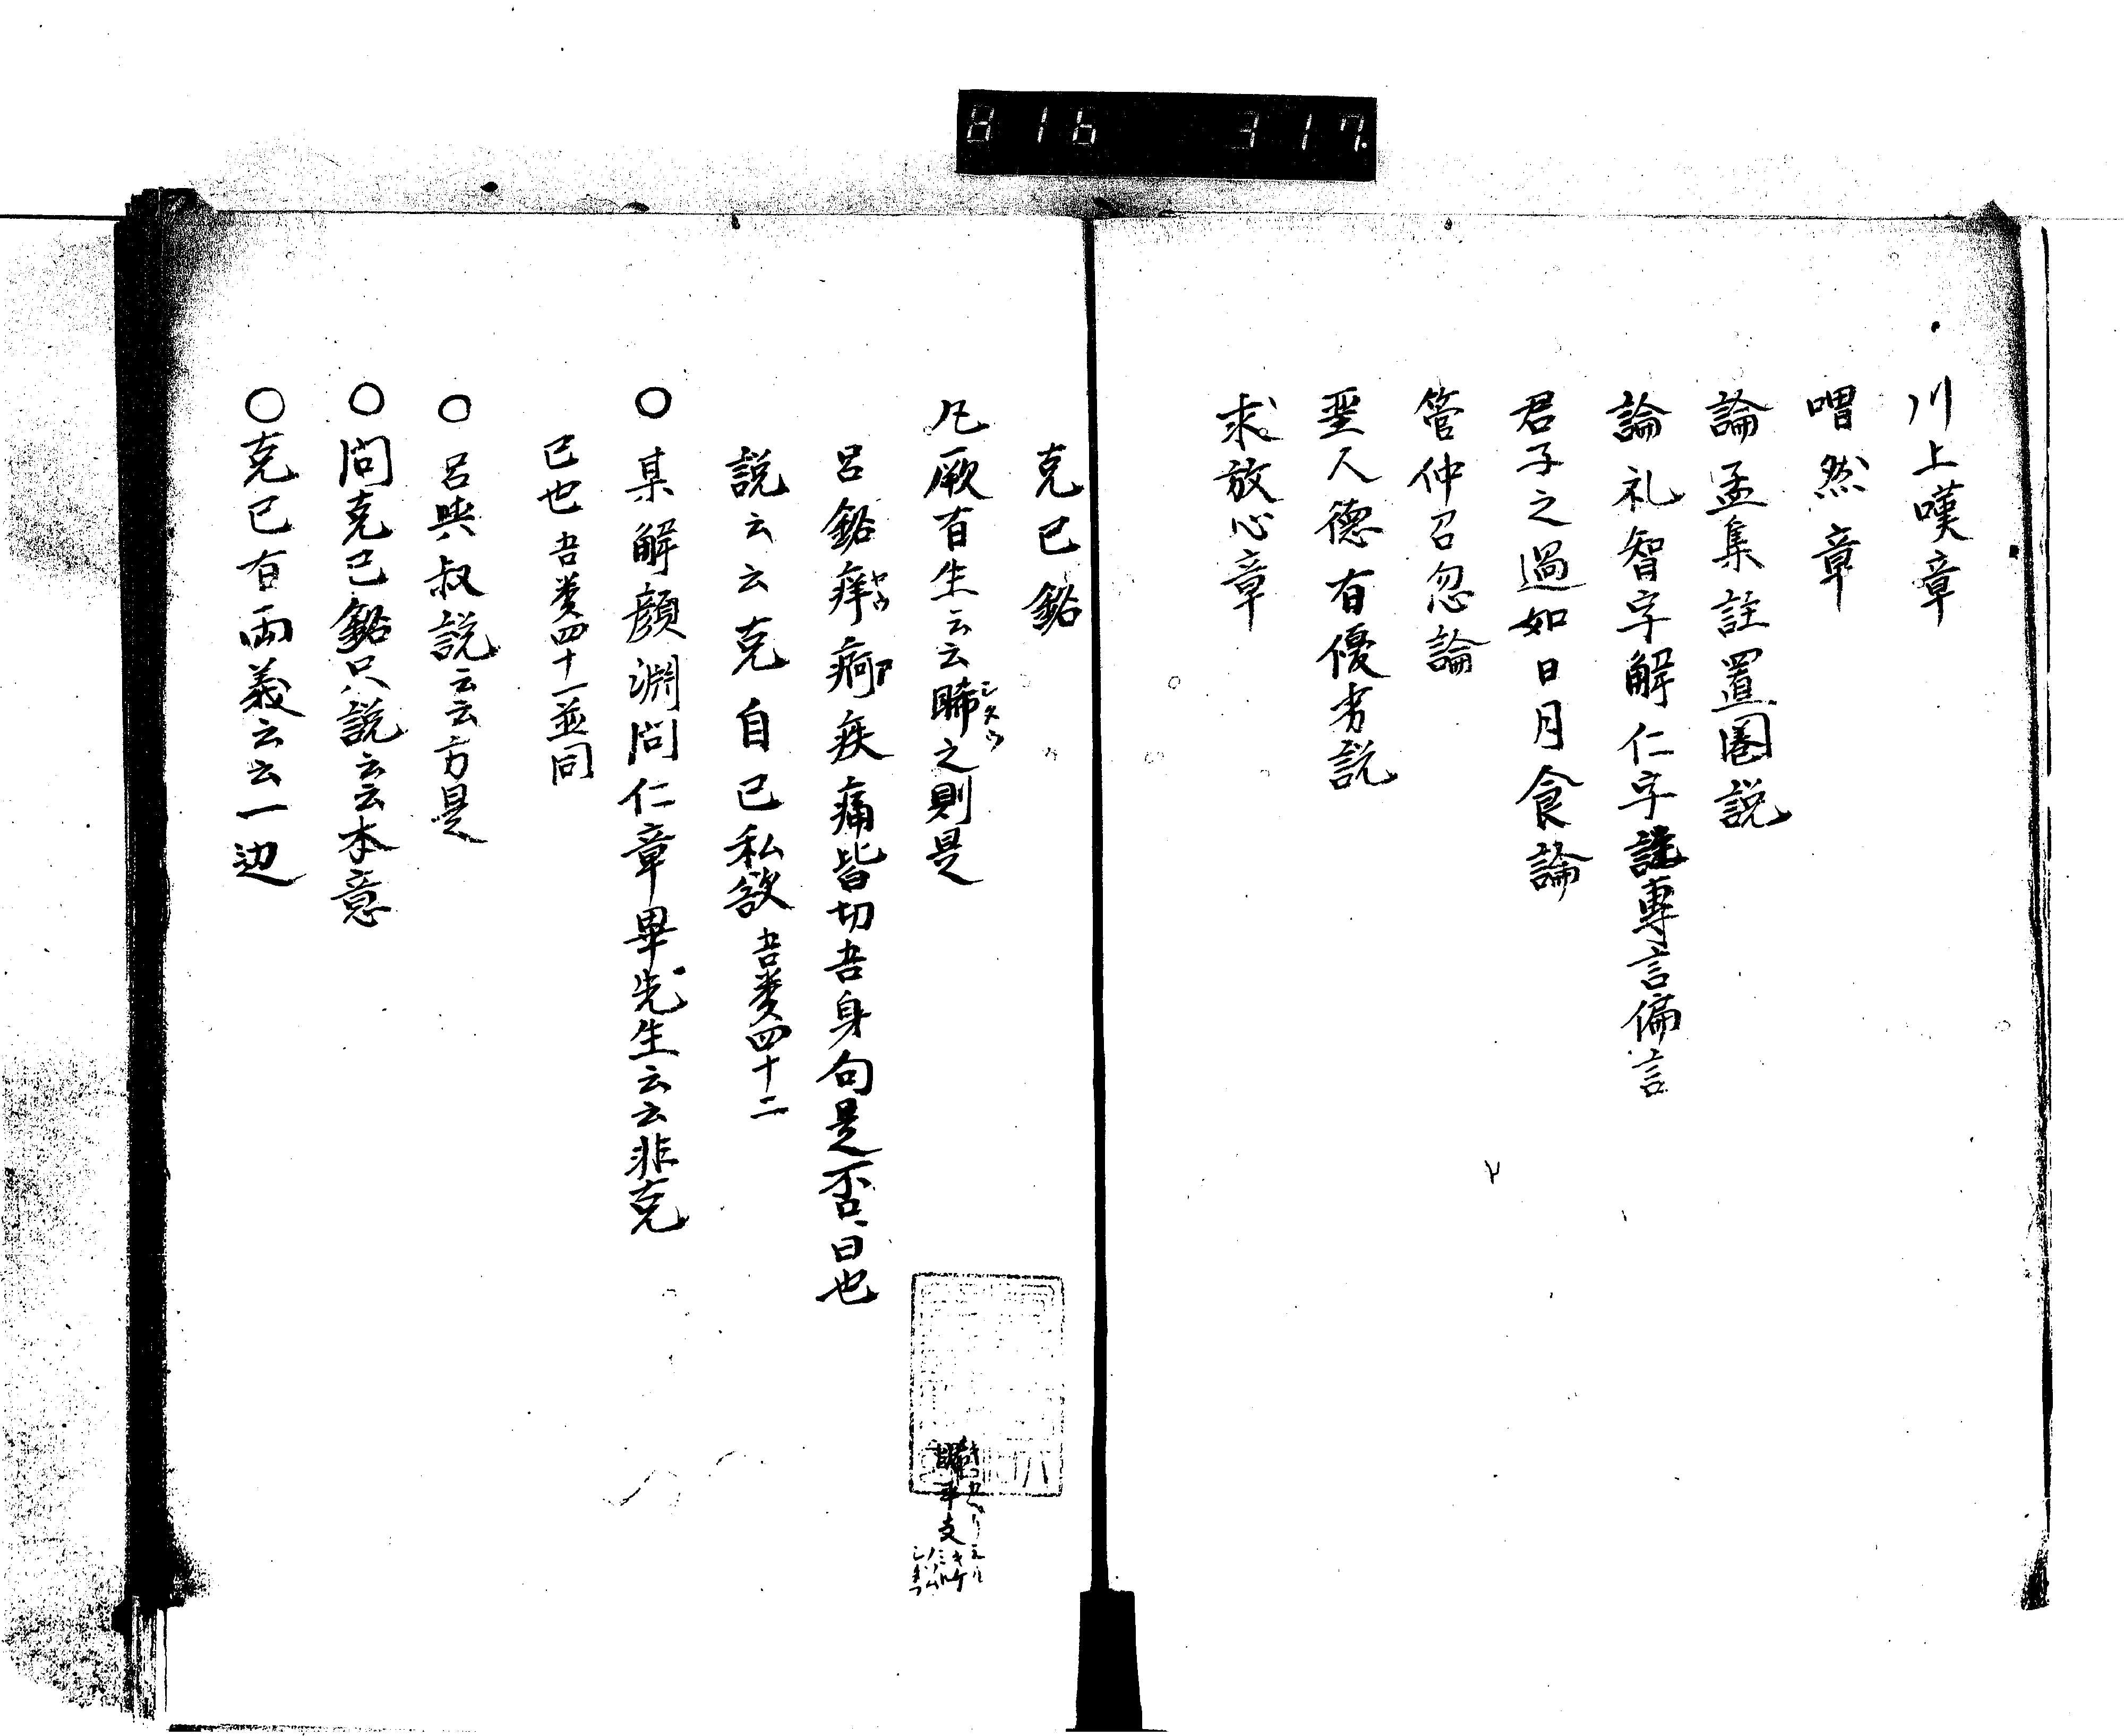 816 317
川上嘆章
喟然章
論孟集註置圏説
論礼智字解仁字誌專言偏言
君子之過如日月食論
管仲召忽論
聖人德有優劣説
求放心章
克己銘
凡厥有生云云睎之則是
呂銘痒痾疾痛皆切吾身句是否、曰也
説云云克自己私欲 吾類四十二
○某解顔淵問仁章畢先生云云非克
己也 吾類四十一並同
○呂與叔説云云方是
○問克己銘只説云云本意
○克己有両義云云一边